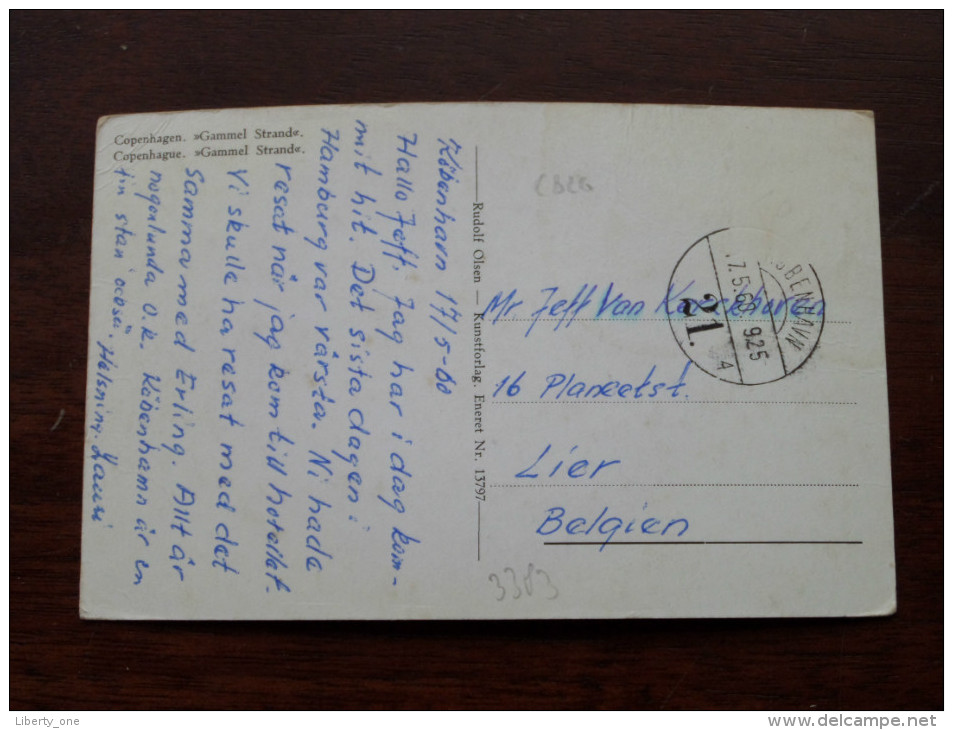 Copenhagen. »Gammel Strand«.
Copenhague. »Gammel Strand«.
København 17/5-60
Hallo Jeff, Jag har i dag kom-
mit hit. Det sista dagen i
Hamburg var värsta. Ni hade
resat när jag kom till hotellet.
Vi skulle ha resat med det
samma med Erling. Allt är
nogenlunda o.k. Köbenhamn är en
fin stan också. Hälsning. Lauri
Rudolf Olsen — Kunstforlag. Eneret Nr. 13797
KØBENHAVN
17.5.60 925
21.
Mr. Jeff Van
16 Planeetst.
Lier
Belgien
3383
Liberty_one
www.delcampe.net